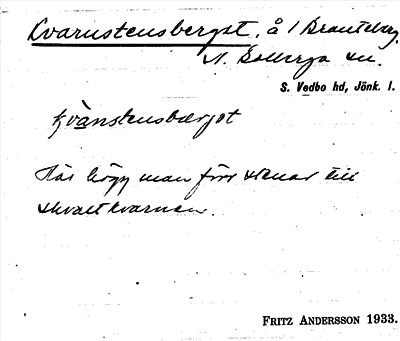 Kvarnstensberget, å 1 Branteberg,
N. Solberga sn.
S. Vedbo hd, Jönk. l.
kvànstensbærjet
Här högg man förr stenar till
skvaltkvarnen.
FRITZ ANDERSSON 1933.